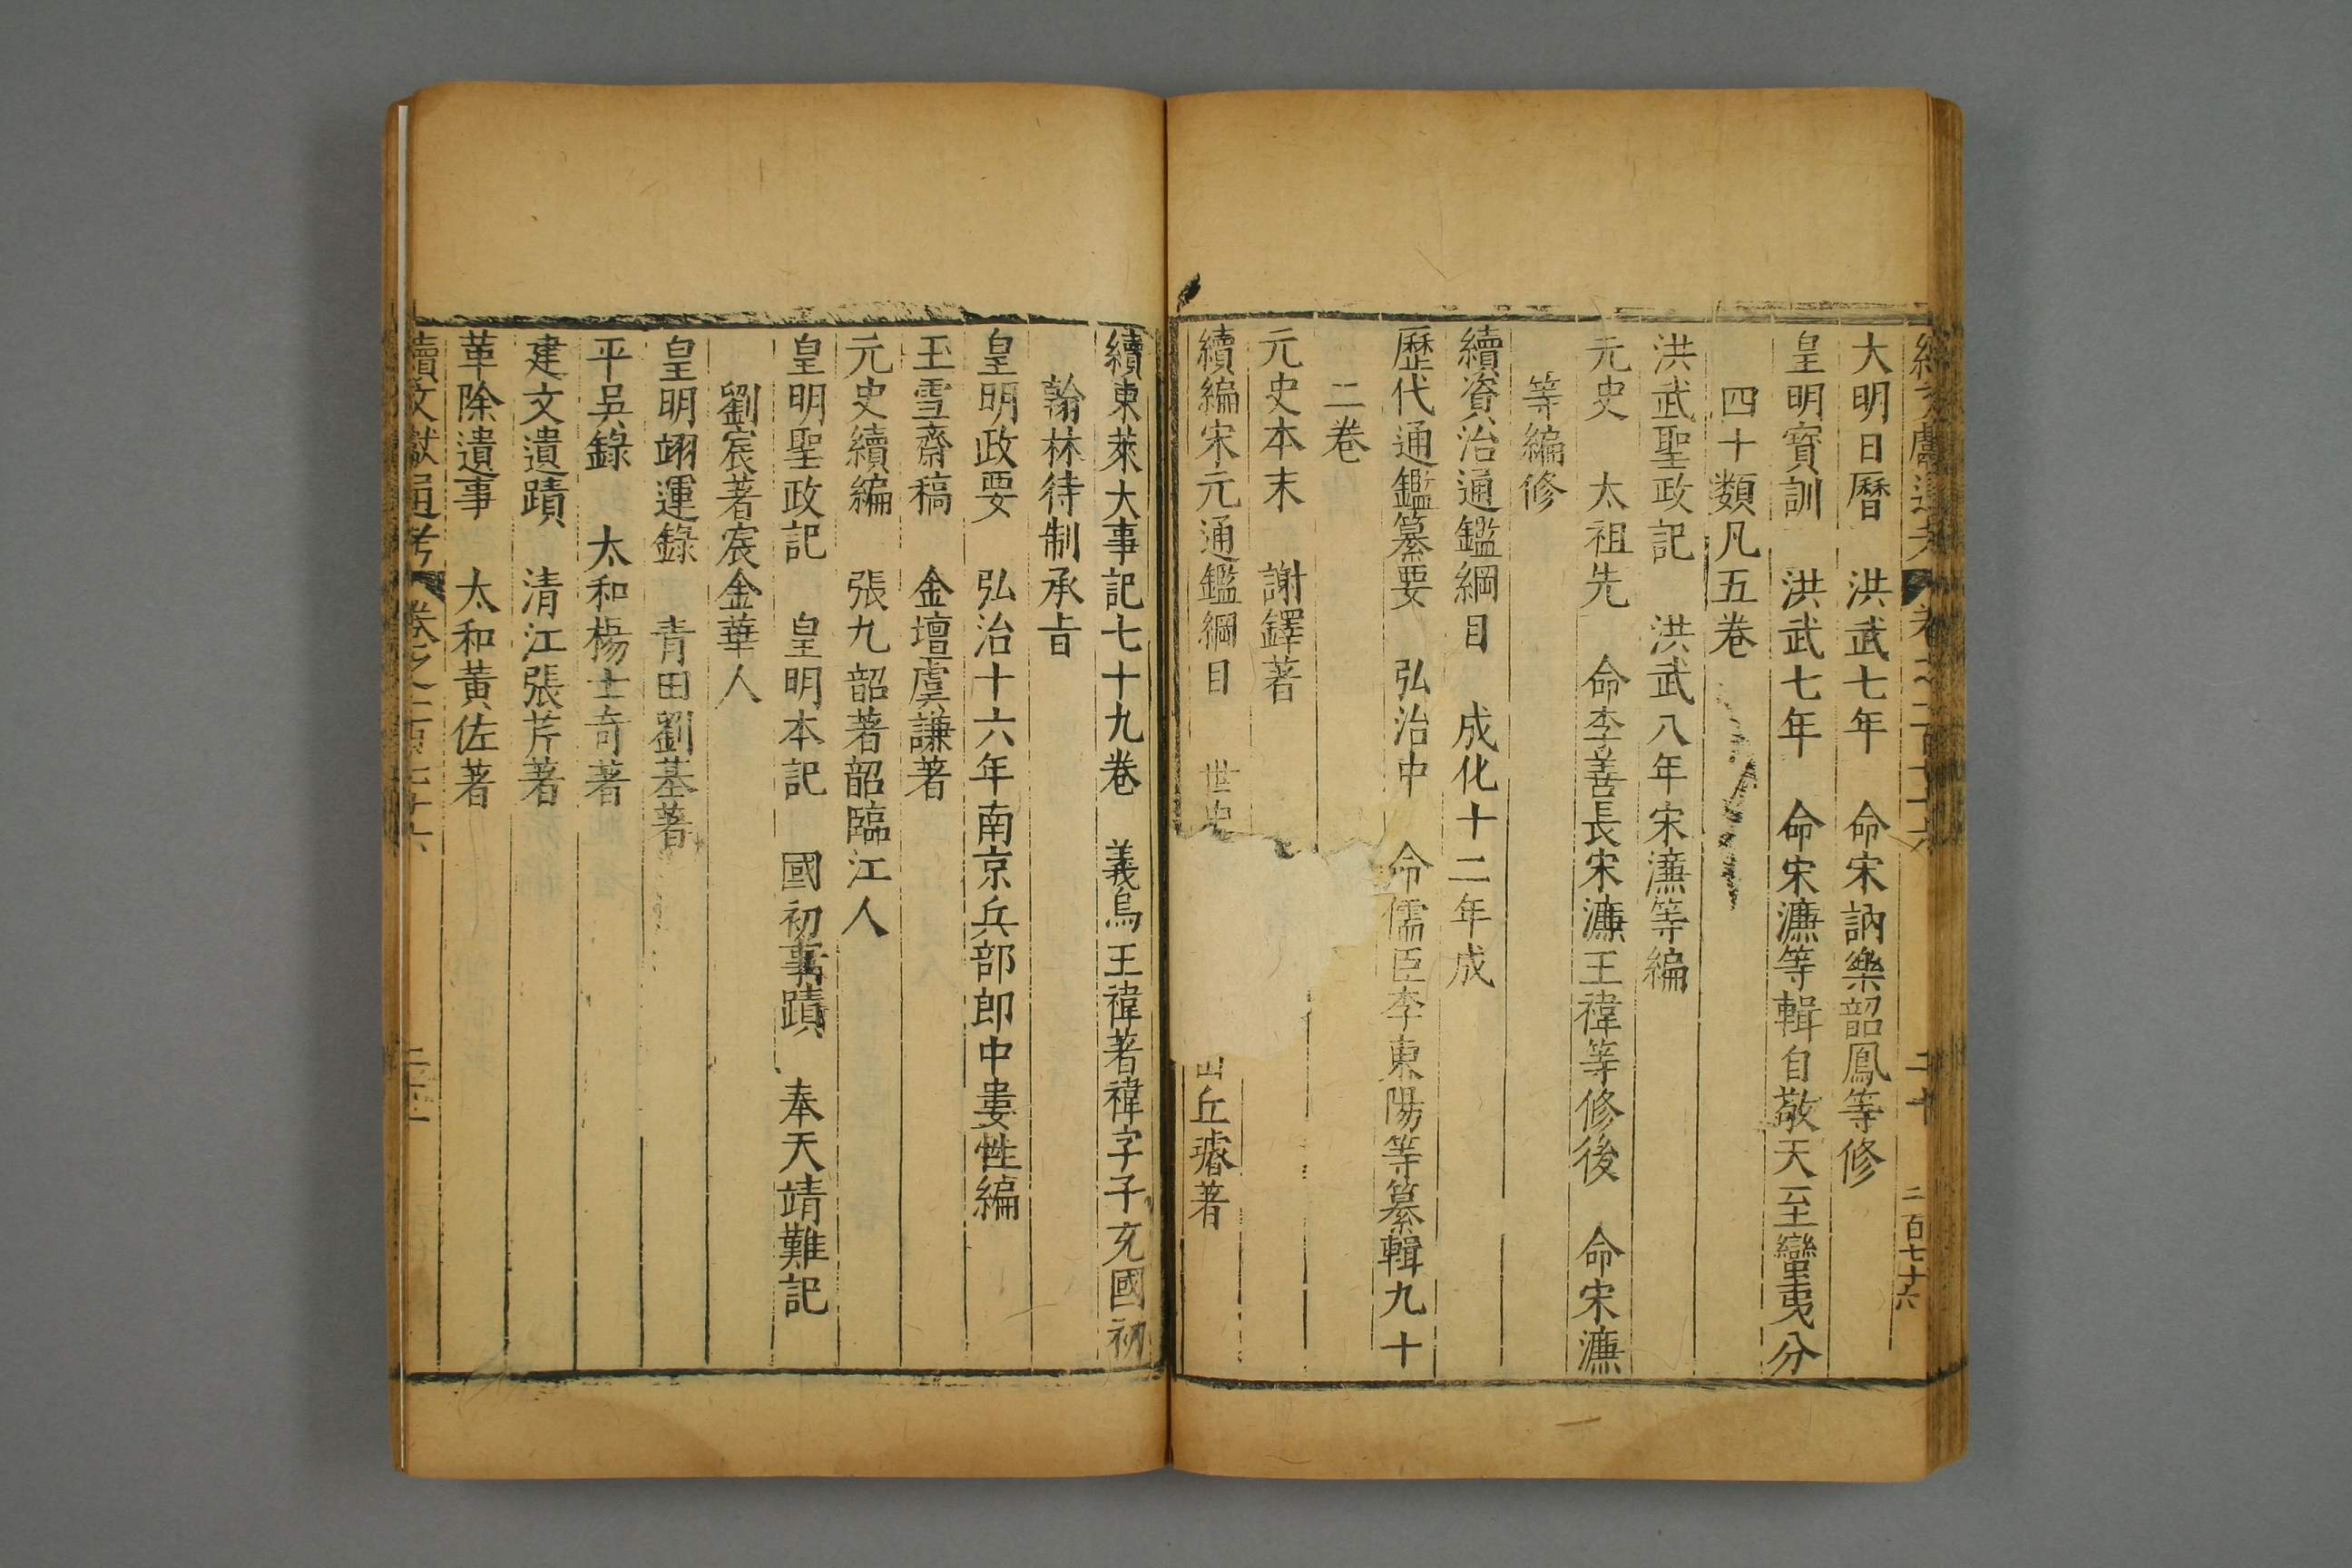 續文獻通考 卷之一百七十六 二十 二百七十六
大明日曆 洪武七年 命宋訥樂韶鳳等修
皇明寶訓 洪武七年 命宋濂等輯自敬天至蠻夷分
四十類凡五卷
洪武聖政記 洪武八年宋濂等編
元史 太祖先 命李善長宋濂王禕等修後 命宋濂
等編修
續資治通鑑綱目 成化十二年成
歷代通鑑纂要 弘治中 命儒臣李東陽等纂輯九十
二卷
元史本末 謝鐸著
續編宋元通鑑綱目 世史 丘濬著
續東萊大事記七十九卷 義烏王禕著禕字子充國初
翰林待制承旨
皇明政要 弘治十六年南京兵部郎中婁性編
玉雪齋稿 金壇虞謙著
元史續編 張九韶著韶臨江人
皇明聖政記 皇明本記 國初事蹟 奉天靖難記
劉宸著宸金華人
皇明翊運錄 青田劉基著
平吳錄 太和楊士奇著
建文遺蹟 清江張芹著
革除遺事 太和黃佐著
續文獻通考 卷之一百七十六